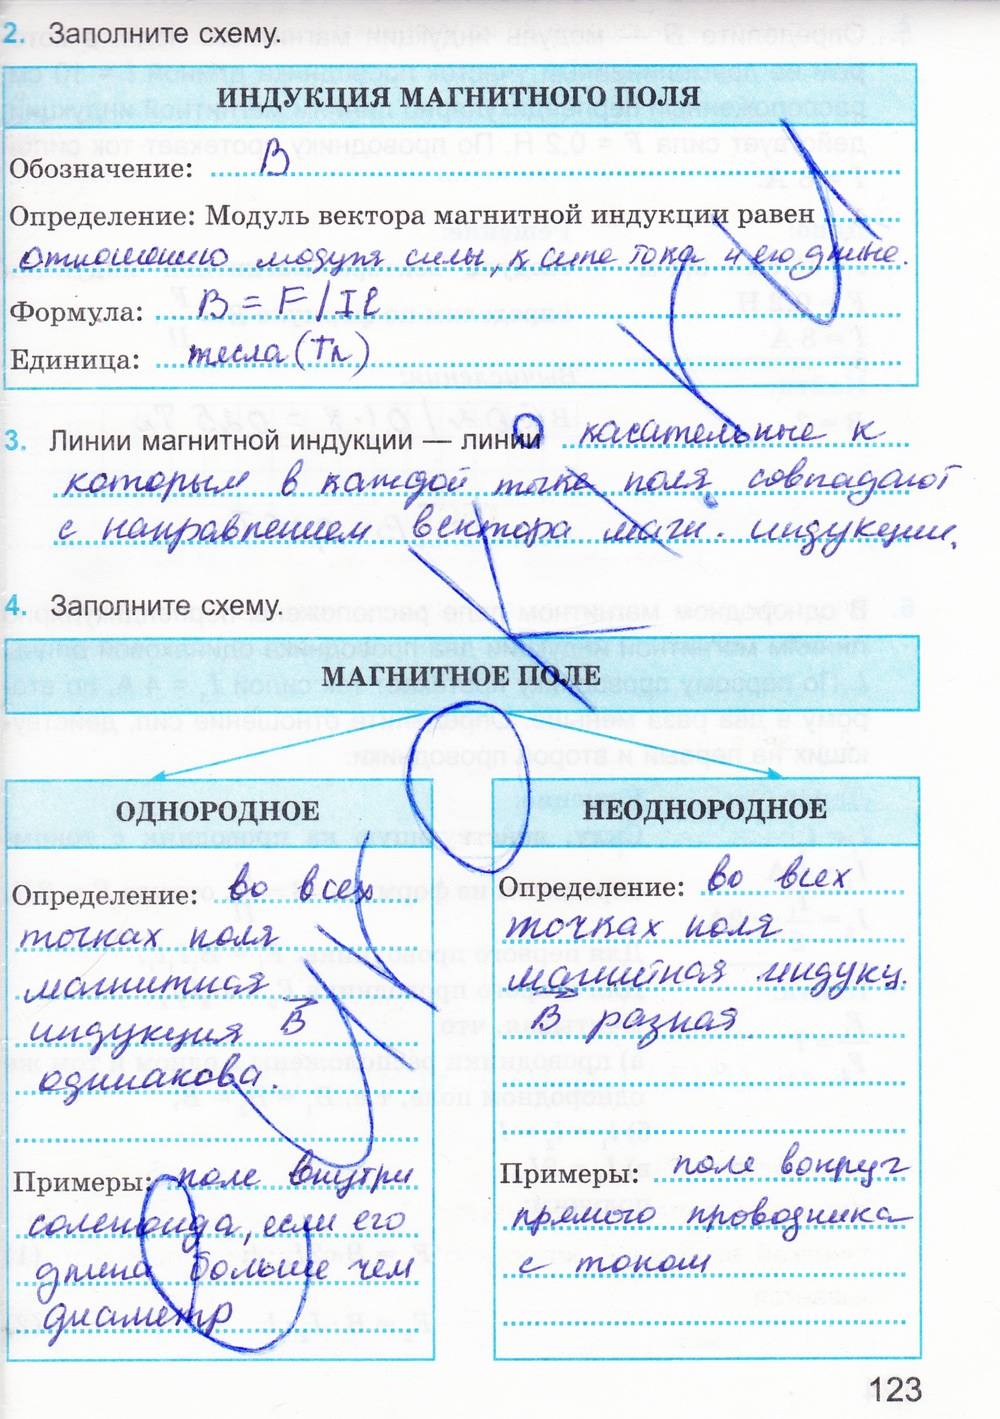 2. Заполните схему.
ИНДУКЦИЯ МАГНИТНОГО ПОЛЯ
Обозначение: B
Определение: Модуль вектора магнитной индукции равен
отношению модуля силы, к силе тока и его длине.
Формула: B = F/Iℓ
Единица: тесла (Тл)
3. Линии магнитной индукции — линии касательные к
которым в каждой точке поля совпадают
с направлением вектора магн. индукции.
4. Заполните схему.
МАГНИТНОЕ ПОЛЕ
ОДНОРОДНОЕ
Определение: во всех
точках поля
магнитная
индукция B⃗
одинакова.
Примеры: поле внутри
соленоида, если его
длина больше чем
диаметр
НЕОДНОРОДНОЕ
Определение: во всех
точках поля
магнитная индукц.
B⃗ разная
Примеры: поле вокруг
прямого проводника
с током
123